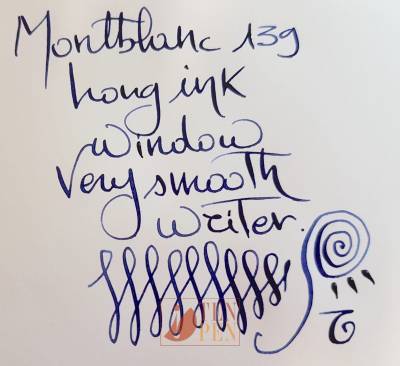 Montblanc 139
Long ink
window
Very smooth
writer.
TENPEN